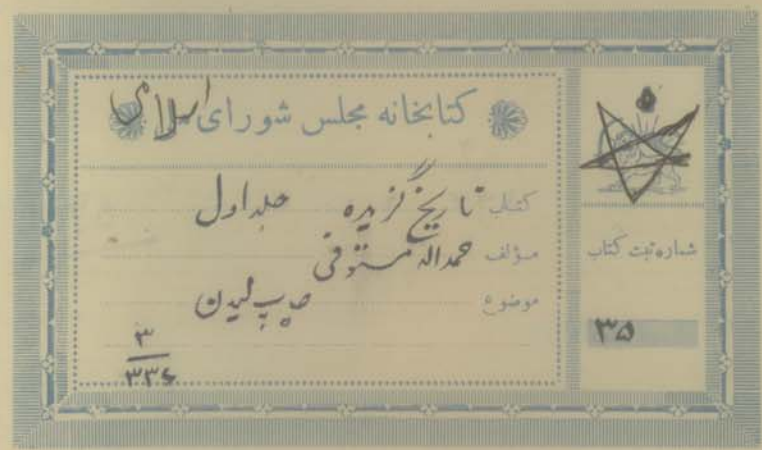 کتابخانه مجلس شورای اسلامی
کتاب تاریخ گزیده جلد اول
مؤلف حمداله مستوفی
موضوع چاپ لیدن
۳
۳۳۶
۵
شماره ثبت کتاب
۳۵